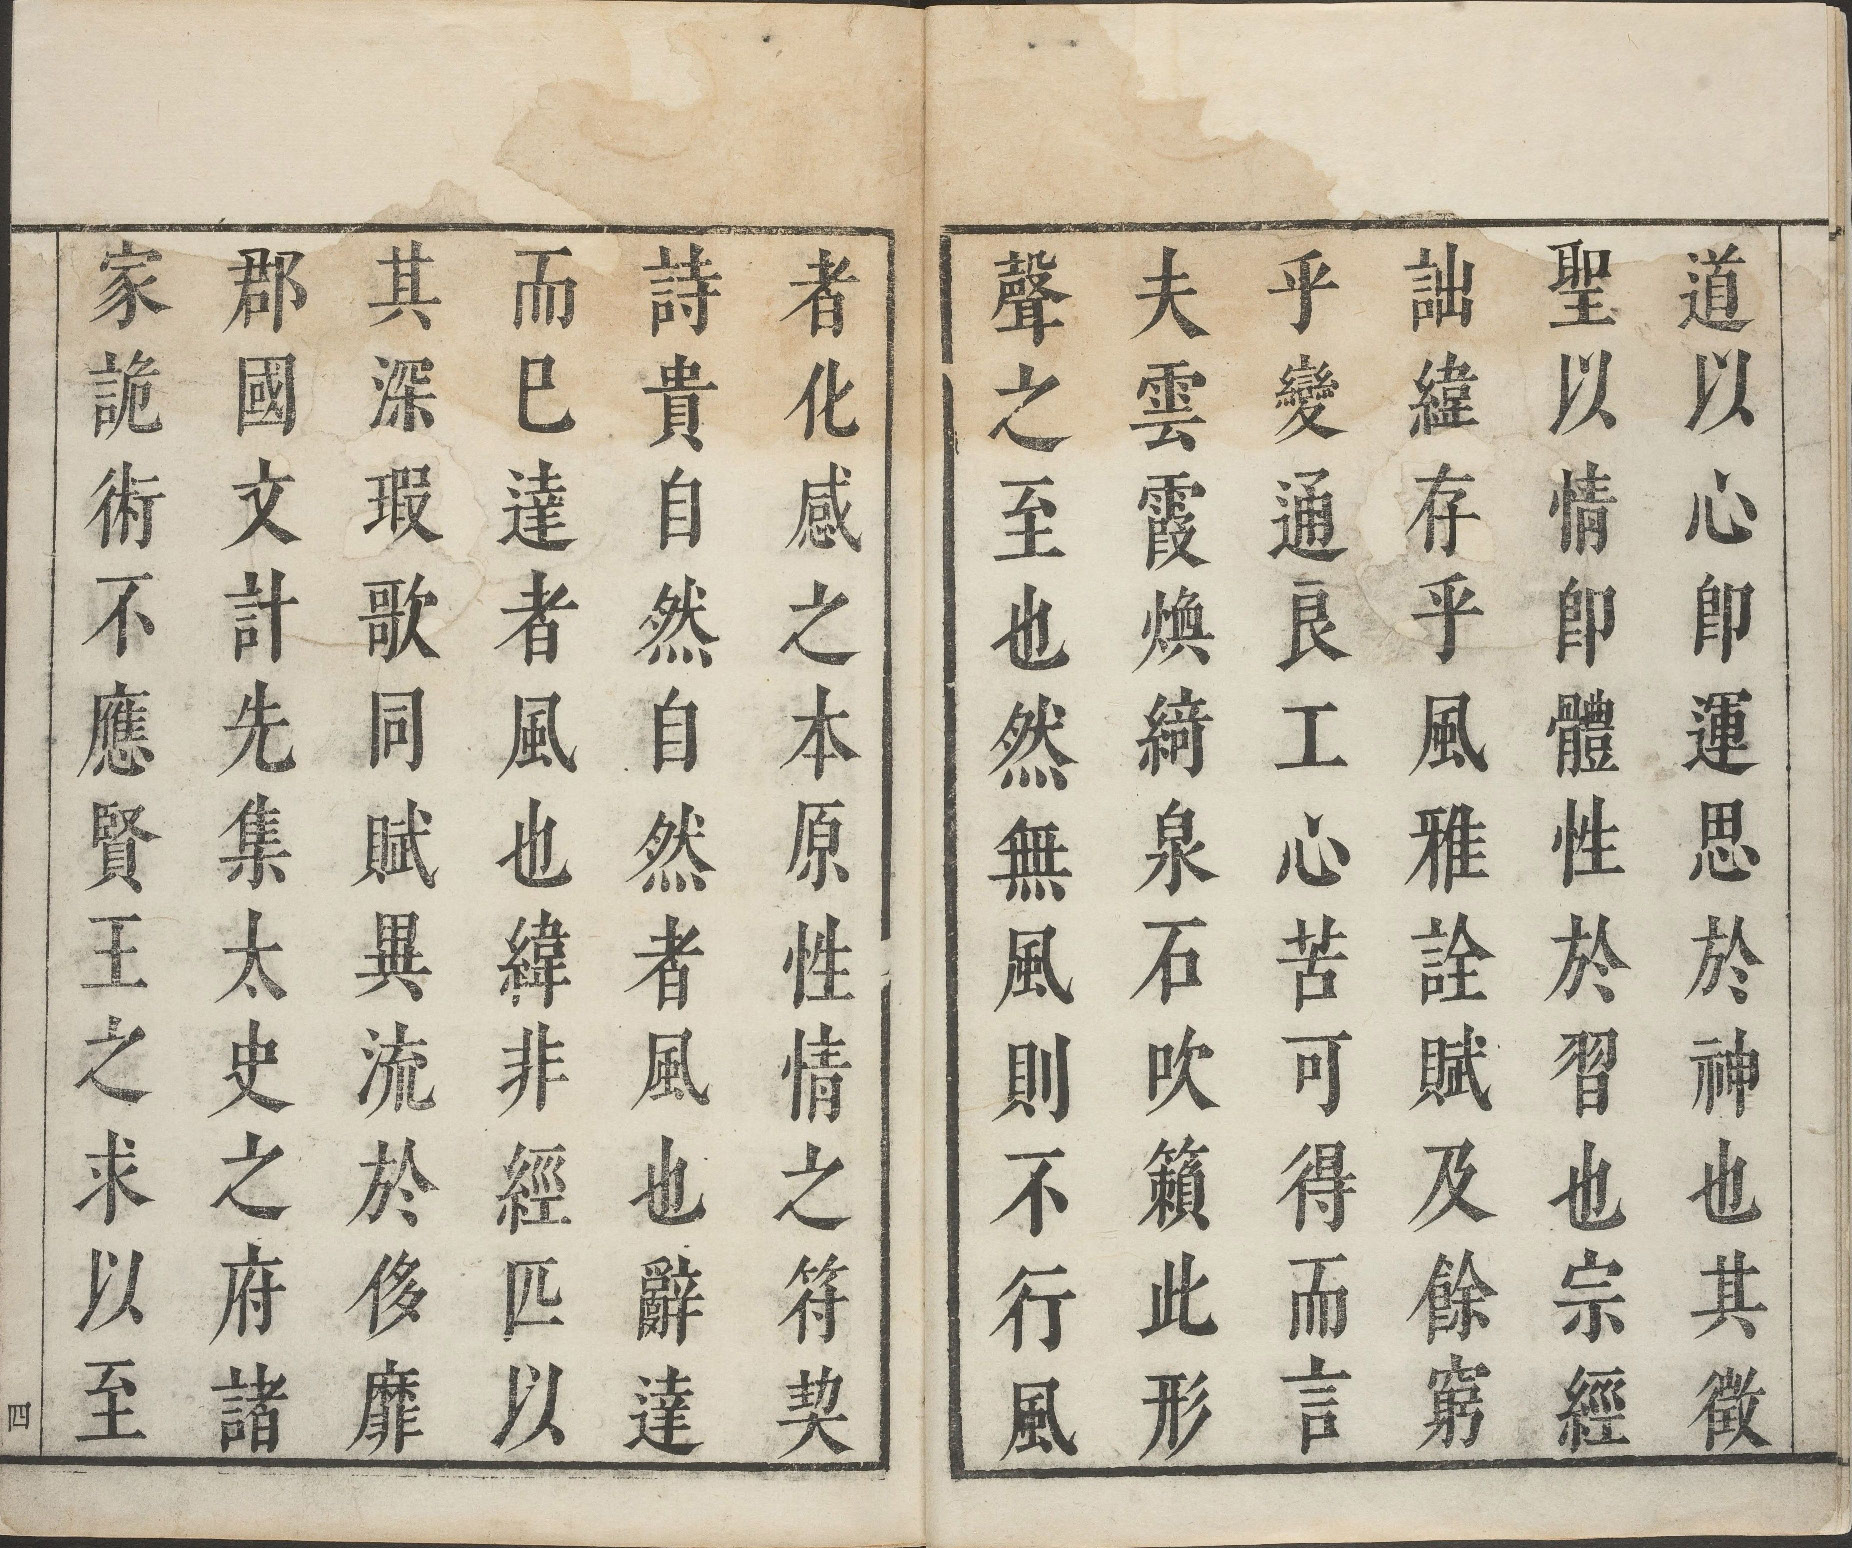 道以心卽運思於神也其徵
聖以情卽體性於習也宗經
詘緯存乎風雅詮賦及餘窮
乎變通良工心苦可得而言
夫雲霞煥綺泉石吹籟此形
聲之至也然無風則不行風
者化感之本原性情之符契
詩貴自然自然者風也辭達
而巳達者風也緯非經匹以
其深瑕歌同賦異流於侈靡
郡國文計先集太史之府諸
家詭術不應賢王之求以至
四